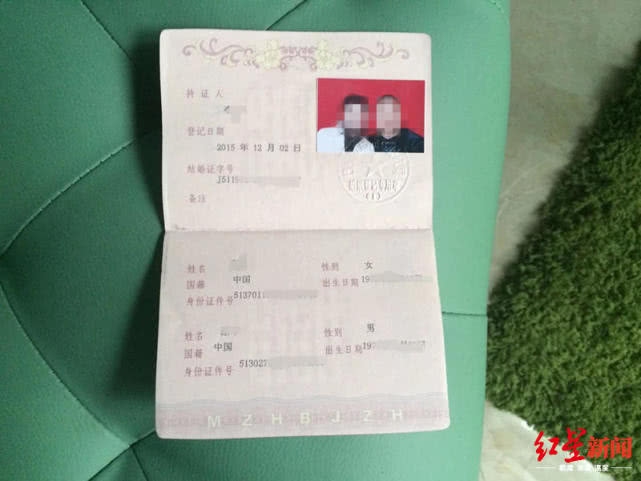 持证人
登记日期
2015 年 12 月 02 日
结婚证字号
J5119
备注
姓名 性别 女
国籍 中国 出生日期 19
身份证件号 513701
姓名 性别 男
国籍 中国 出生日期 197
身份证件号 51302
MZHBJZH
红星新闻